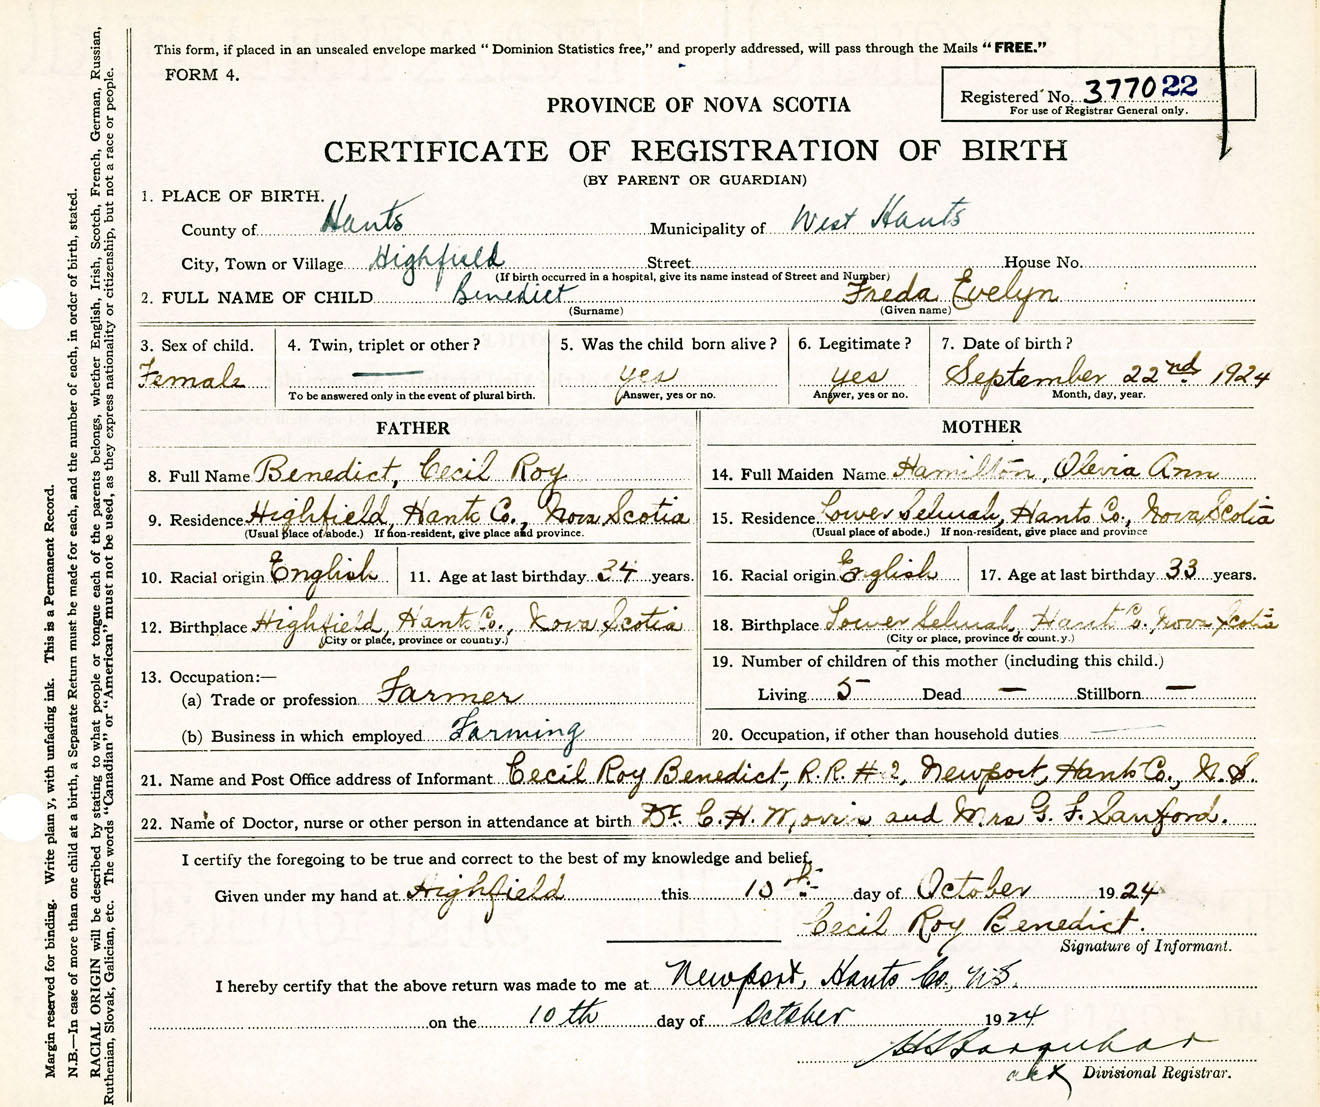 This form, if placed in an unsealed envelope marked "Dominion Statistics free," and properly addressed, will pass through the Mails "FREE."
FORM 4.
Registered No. 377022
For use of Registrar General only.
PROVINCE OF NOVA SCOTIA
CERTIFICATE OF REGISTRATION OF BIRTH
(BY PARENT OR GUARDIAN)
1. PLACE OF BIRTH.
County of Hants Municipality of West Hants
City, Town or Village Highfield Street House No.
(If birth occurred in a hospital, give its name instead of Street and Number)
2. FULL NAME OF CHILD Benedict Freda Evelyn
(Surname) (Given name)
3. Sex of child. 4. Twin, triplet or other? 5. Was the child born alive? 6. Legitimate? 7. Date of birth?
Female — yes yes September 22nd 1924
To be answered only in the event of plural birth. (Answer, yes or no. Answer, yes or no. Month, day, year.
FATHER MOTHER
8. Full Name Benedict, Cecil Roy 14. Full Maiden Name Hamilton, Olevia Ann
9. Residence Highfield, Hants Co., Nova Scotia 15. Residence Lower Selmah, Hants Co., Nova Scotia
(Usual place of abode.) If non-resident, give place and province. (Usual place of abode.) If non-resident, give place and province
10. Racial origin English 11. Age at last birthday 34 years. 16. Racial origin English 17. Age at last birthday 33 years.
12. Birthplace Highfield, Hants Co., Nova Scotia 18. Birthplace Lower Selmah, Hants Co. Nova Scotia
(City or place, province or county.) (City or place, province or county.)
13. Occupation:— 19. Number of children of this mother (including this child.)
(a) Trade or profession Farmer Living 5 Dead — Stillborn —
(b) Business in which employed Farming 20. Occupation, if other than household duties —
21. Name and Post Office address of Informant Cecil Roy Benedict, R.R. #2, Newport, Hants Co., N.S.
22. Name of Doctor, nurse or other person in attendance at birth Dr. C. H. Morris and Mrs G. F. Sanford.
I certify the foregoing to be true and correct to the best of my knowledge and belief.
Given under my hand at Highfield this 10th day of October 1924
Cecil Roy Benedict.
Signature of Informant.
I hereby certify that the above return was made to me at Newport, Hants Co., N.S.
on the 10th day of October 1924
Farquhar
Divisional Registrar.
Margin reserved for binding. Write plainy, with unfading ink. This is a Permanent Record.
N.B.—In case of more than one child at a birth, a Separate Return must be made for each, and the number of each, in order of birth, stated.
RACIAL ORIGIN will be described by stating to what people or tongue each of the parents belongs, whether English, Irish, Scotch, French, German, Russian,
Ruthenian, Slovak, Galician, etc. The words "Canadian" or "American" must not be used, as they express nationality or citizenship, but not a race or people.